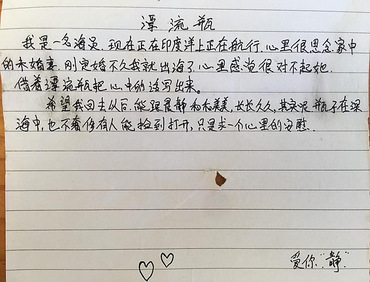 漂流瓶
我是一名海员,现在正在印度洋上正在航行,心里很思念家中
的未婚妻,刚定婚不久我就出海了,心里感觉很对不起她.
借着漂流瓶把心中的话写出来。
希望我回去以后,能跟晨静和和美美,长长久久,其实呢,瓶子在深
海中,也不奢侈有人能捡到打开,只是求一个心里的安慰.
爱你"静"